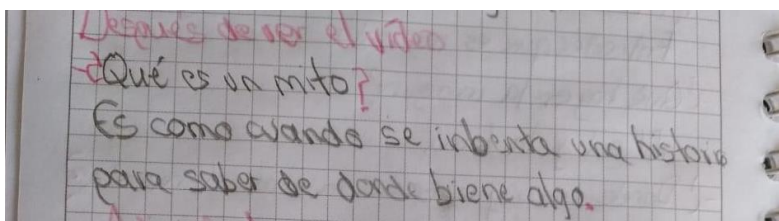 Despues de ver el video
¿Qué es un mito?
Es como cuando se inbenta una historia
para saber de donde biene algo.